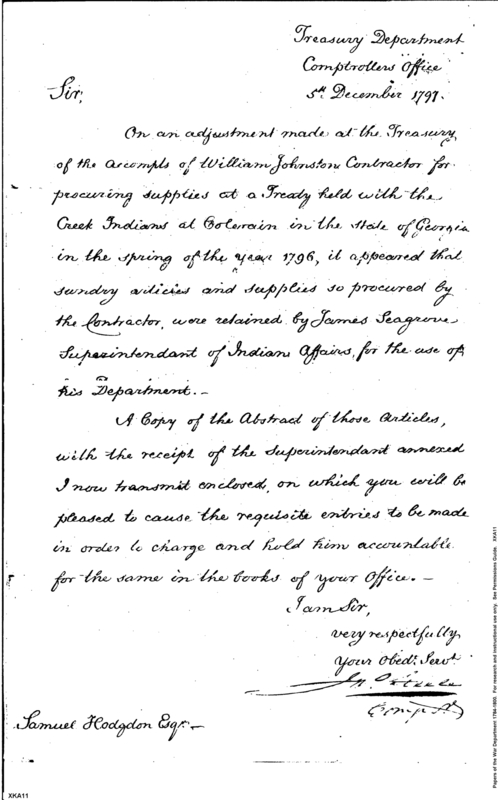 Treasury Department
Comptrollers Office
Sir,
5th December 1797.
On an adjustment made at the Treasury
of the accompts of William Johnston Contractor for
procuring supplies at a Treaty held with the
Creek Indians at Colerain in the state of Georgia
in the spring of the year 1796, it appeared that
sundry articles and supplies so procured by
the Contractor, were retained by James Seagrove
Superintendant of Indian Affairs, for the use of
his Department.—
A Copy of the Abstract of those Articles,
with the receipt of the Superintendant annexed
I now transmit enclosed, on which you will be
pleased to cause the requisite entries to be made
in order to charge and hold him accountable
for the same in the books of your Office.—
I am Sir,
very respectfully
Your Obedt. Servt.
Jn. Steele
Comp
Samuel Hodgdon Esqr.—
XKA11
Papers of the War Department 1784-1800. For research and instructional use only. See Permissions Guide. XKA11